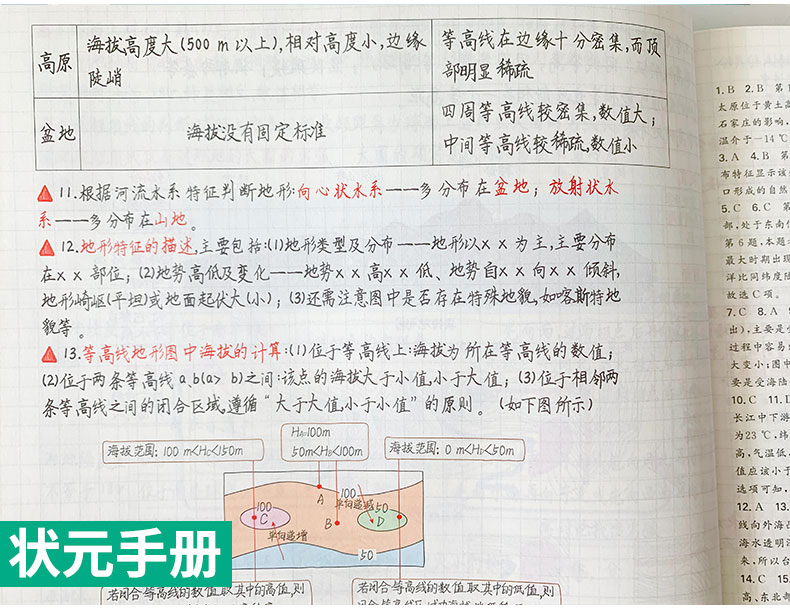 高原
海拔高度大(500 m以上),相对高度小,边缘
陡峭
等高线在边缘十分密集,而顶
部明显稀疏
盆地
海拔没有固定标准
四周等高线较密集,数值大;
中间等高线较稀疏,数值小
11.根据河流水系特征判断地形:向心状水系——多分布在盆地;放射状水
系——多分布在山地。
12.地形特征的描述,主要包括:(1)地形类型及分布——地形以××为主,主要分布
在××部位;(2)地势高低及变化——地势××高××低、地势自××向××倾斜,
地形崎岖(平坦)或地面起伏大(小);(3)还需注意图中是否存在特殊地貌,如喀斯特地
貌等。
13.等高线地形图中海拔的计算:(1)位于等高线上:海拔为所在等高线的数值;
(2)位于两条等高线a、b(a> b)之间:该点的海拔大于小值,小于大值;(3)位于相邻两
条等高线之间的闭合区域,遵循“大于大值,小于小值”的原则。(如下图所示)
海拔范围:100 m<HC<150m
HA=100m
50m<HB<100m
海拔范围:0 m<HD<50m
100
C
A
B
100
50
D
单向递减
单向递增
50
若闭合等高线的数值取其中的高值,则
若闭合等高线的数值取其中的低值,则
状元手册
1.B 2.B 第1
太原位于黄土高
石家庄的影响,
温介于—14 ℃
3.A 4.B 第
布特征显示该
口形成的自然
5.C 6.C 第
部,处于东南信
第6题,本题考
最大时期出现
洋比同纬度陆
故选C项。
7.C 8.A
出),主要是
过程中容易
大变小;图中
要是受海陆
10.C 11.D
长江中下游
为23 ℃,纬
高,气温低,
值应该小于
选项可知,
12.A 13.
线向外海凸
海水透明
来,所以台
14.C 15.
高、东北部